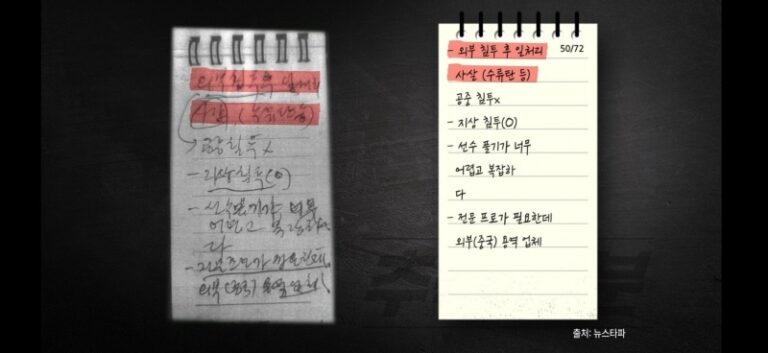 외부 침투 후 일처리
사살 (수류탄 등)
→ 공중침투 x
- 지상침투(O)
- 선수 풀기가 너무
어렵고 복잡하
다
- 전문 프로가 필요한데
외부(중국) 용역 업체
- 외부 침투 후 일처리 50/72
사살 (수류탄 등)
공중 침투x
- 지상 침투(O)
- 선수 풀기가 너무
어렵고 복잡하
다
- 전문 프로가 필요한데
외부(중국) 용역 업체
출처: 뉴스타파